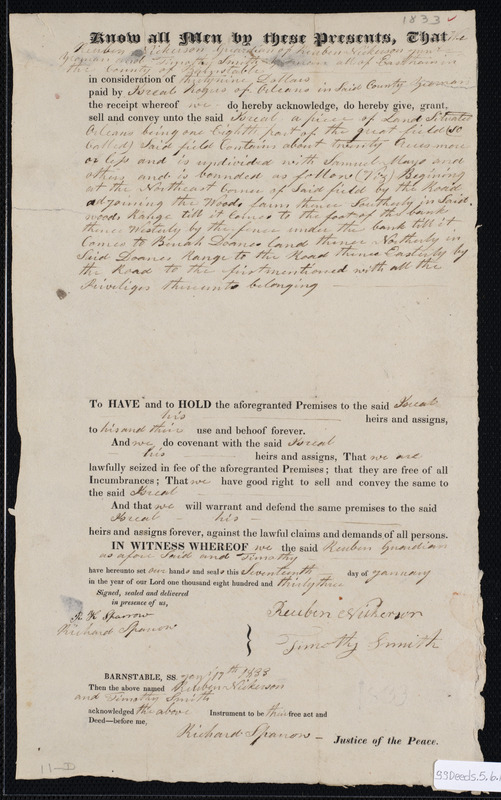 1833
Know all Men by these Presents, That we
Reuben Nickerson Guardian of Reuben Nickerson
Yeoman and Timothy Smith all of Eastham in
the County of Barnstable
in consideration of thirty nine Dollars
paid by Isreal Rogers of Orleans in Said County Yeoman
the receipt whereof we do hereby acknowledge, do hereby give, grant,
sell and convey unto the said Isreal a piece of Land Situated
Orleans being one Eighth part of the great field (so
Called) Said field Contains about twenty Acres more
or less and is undivided with Samuel Mayo and
others and is bounded as follow (Viz) Begining
at the Northeast Corner of Said field by the Road
adjoining the Woods farm thence Southerly in Said
woods Range till it Comes to the foot of the bank
thence Westerly by the fence under the bank till it
Comes to Doanes land thence Northerly in
Said Doanes Range to the Road thence Easterly by
the Road to the first mentioned with all the
Priviliges thereunto belonging
To HAVE and to HOLD the aforegranted Premises to the said Isreal
his heirs and assigns,
to his and their use and behoof forever.
And we do covenant with the said Isreal
his heirs and assigns, That we are
lawfully seized in fee of the aforegranted Premises; that they are free of all
Incumbrances; That we have good right to sell and convey the same to
the said Isreal
And that we will warrant and defend the same premises to the said
Isreal his
heirs and assigns forever, against the lawful claims and demands of all persons.
IN WITNESS WHEREOF we the said Reuben Guardian
as afore Said and Timothy
have hereunto set our hands and seals this Seventeenth day of January
in the year of our Lord one thousand eight hundred and thirty three
Signed, sealed and delivered
in presence of us,
H. K Sparrow
Richard Sparrow
Reuben Nickerson
Timothy Smith
BARNSTABLE, SS. Jany 17th 1833
Then the above named Reuben Nickerson
and Timothy Smith
acknowledged the above Instrument to be their free act and
Deed—before me,
Richard Sparrow – Justice of the Peace.
11-D
SSDeeds.5.b.